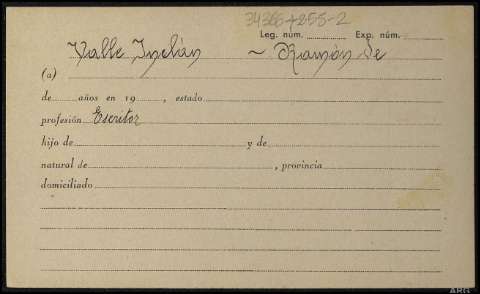 34366+255-2
Leg. núm. Exp. núm.
Valle Inclán ~ Ramón de
(a)
de años en 19 , estado
profesión Escritor
hijo de y de
natural de , provincia
domiciliado